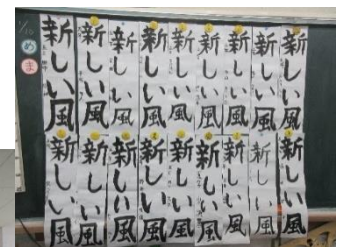 1/10
め
ま
新しい風
新しい風
新しい風
新しい風
新しい風
新しい風
新しい風
新しい風
新しい風
新しい風
新しい風
新しい風
新しい風
新しい風
新しい風
新しい風
新しい風
新しい風